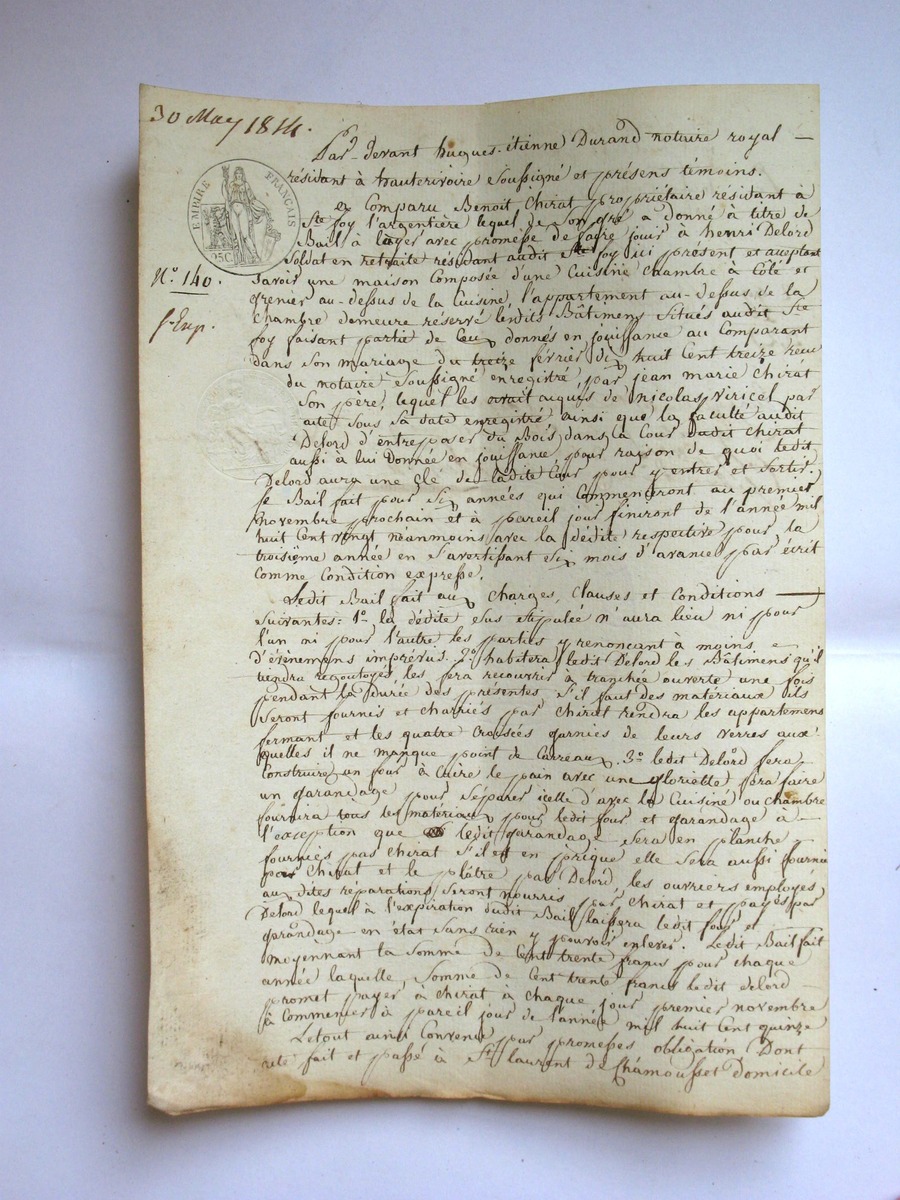 30 May 1814.
Par devant hugues étienne Durand notaire royal
résidant à hauterivoire soussigné et présens témoins.
EMPIRE FRANÇAIS
25C.
ex Comparu Benoit Chirat propriétaire résidant à
Ste foy l'argentière lequel de Son gré a donné à titre de
Bail à loyer avec promesse de faire jouir à henri Delord
Soldat en retraite résidant audit Ste foy ici présent et aceptant
N.º 140.
Savoir une maison Composée d'une Cuisine Chambre à Coté et
grenier au-dessus de la Cuisine, l'appartement au-dessus de la
Chambre demeure réservé lesdits Bâtimens Situés audit Ste
foy faisant partie de Ceux donnés en jouissance au Comparant
dans Son mariage du treize février dix huit Cent treize recu
du notaire Soussigné enregistré, par jean marie Chirat
Son père, lequel les avait aiquis de nicolas Viricel par
acte Sous Sa date enregistré ainsi que la faculté audit
Delord d'entreposer du Bois dans la Cour dudit Chirat
aussi à lui Donnée en jouissance, pour raison de quoi ledit
Delord aura une glé de ladite Cour pour y entrer et Sortir.
le Bail fait pour Six années qui Commenceront au premier
novembre prochain et à pareil jour finiront de l'année mil
huit Cent vingt néanmoins avec la dédite respective pour la
troisième année en S'avertissant Six mois d'avance par écrit
Comme Condition expresse.
Ledit Bail fait aux Charges, Clauses et Conditions
Suivantes: 1º la dédite Sus Stipulée n'aura lieu ni pour
l'un ni pour l'autre les parties y renoncant à moins
d'évènemens imprévus. 2º habitera ledit Delord les Bâtimens qu'il
tiendra regoutoyés, les fera recouvrir à tranchée ouverte une fois
pendant la durée des présentes S'il faut des matériaux ils
Seront fournis et charriés par Chirat rendra les appartemens
fermant et les quatre Croisées garnies de leurs verres aux
quelles il ne manque point de Carreaux. 3º ledit Delord fera
Construire un four à Cuire le pain avec une gloriette fera faire
un garandage pour Séparer icelle d'avec la Cuisine ou chambre
fournira tous les matériaux pour ledit four et garandage à
l'exception que ledit garandage Sera en planche
fournies par Chirat S'il est en brique elle Sera aussi fournie
par Chirat et le plâtre par Delord, les ouvriers employés
aux dites réparations Seront nourris par Chirat et payés par
Delord lequel à l'expiration dudit Bail laissera ledit four et
garandage en état Sans rien y pouvoir enlever. Ledit Bail fait
moyennant la Somme de Cent trente francs pour chaque
année laquelle Somme de Cent trente francs ledit delord
promet payer à Chirat à chaque jour premier novembre
à Commencer à pareil jour de l'année mil huit Cent quinze
Letout ainsi Convenu par promesses obligation Dont
acte fait et passé à St laurent de Chamousset Domicile